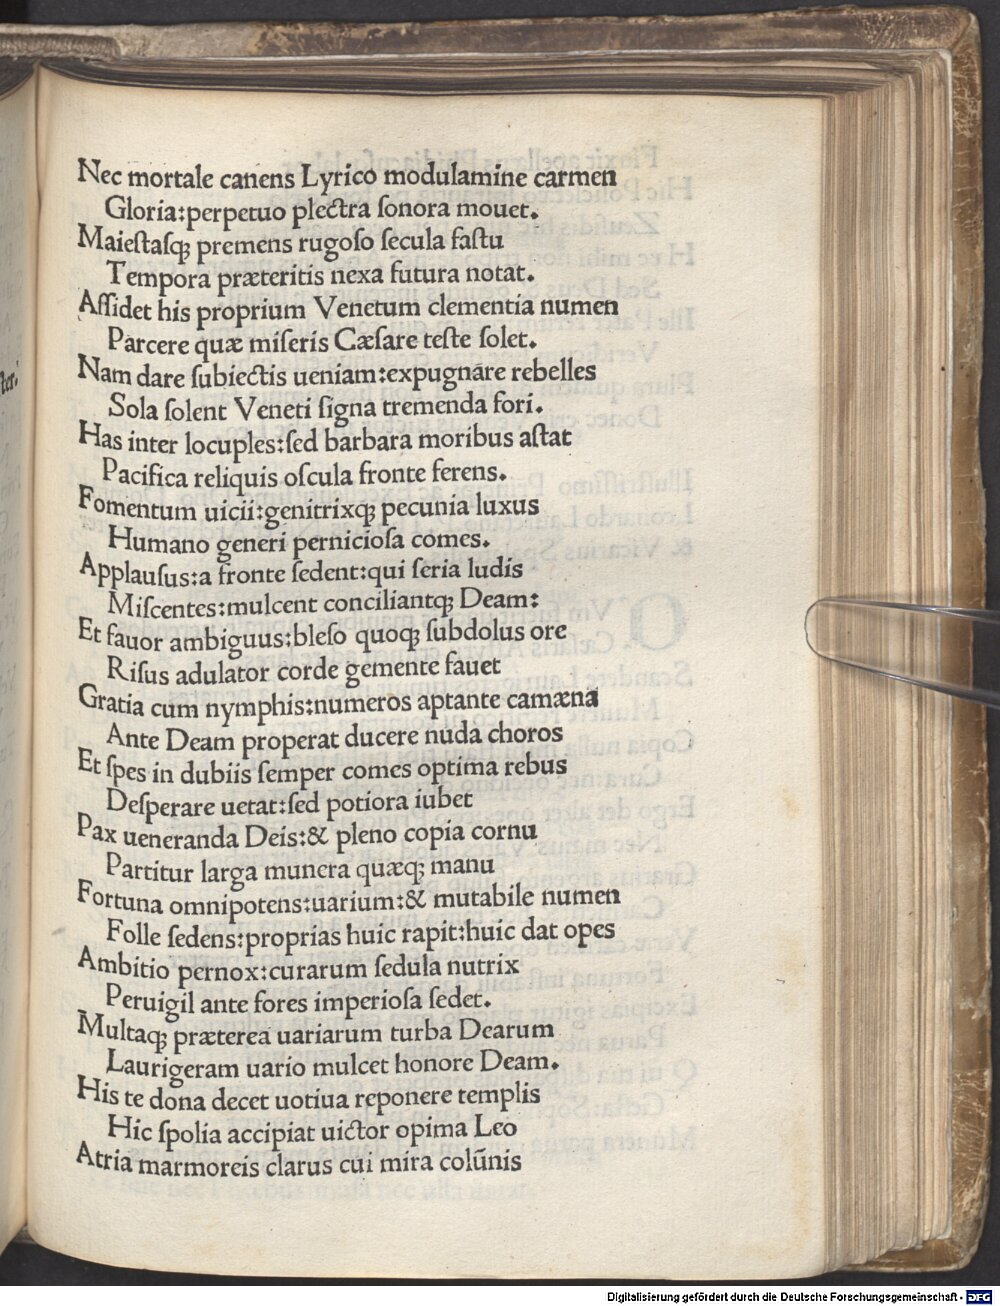 Nec mortale canens Lyrico modulamine carmen
Gloria:perpetuo plectra ſonora mouet.
Maieſtaſqꝫ premens rugoſo ſecula faſtu
Tempora præteritis nexa futura notat.
Aſſidet his proprium Venetum clementia numen
Parcere quæ miſeris Cæſare teſte ſolet.
Nam dare ſubiectis ueniam:expugnare rebelles
Sola ſolent Veneti ſigna tremenda fori.
Has inter locuples:ſed barbara moribus aſtat
Pacifica reliquis oſcula fronte ferens.
Fomentum uicii:genitrixqꝫ pecunia luxus
Humano generi pernicioſa comes.
Applauſus:a fronte ſedent:qui ſeria ludis
Miſcentes:mulcent conciliantqꝫ Deam:
Et fauor ambiguus:bleſo quoqꝫ ſubdolus ore
Riſus adulator corde gemente fauet
Gratia cum nymphis:numeros aptante camæna
Ante Deam properat ducere nuda choros
Et ſpes in dubiis ſemper comes optima rebus
Deſperare uetat:ſed potiora iubet
Pax ueneranda Deis:& pleno copia cornu
Partitur larga munera quæqꝫ manu
Fortuna omnipotens:uarium:& mutabile numen
Folle ſedens:proprias huic rapit:huic dat opes
Ambitio pernox:curarum ſedula nutrix
Peruigil ante fores imperioſa ſedet.
Multaqꝫ præterea uariarum turba Dearum
Laurigeram uario mulcet honore Deam.
His te dona decet uotiua reponere templis
Hic ſpolia accipiat uictor opima Leo
Atria marmoreis clarus cui mira colūnis
Digitalisierung gefördert durch die Deutsche Forschungsgemeinschaft - DFG